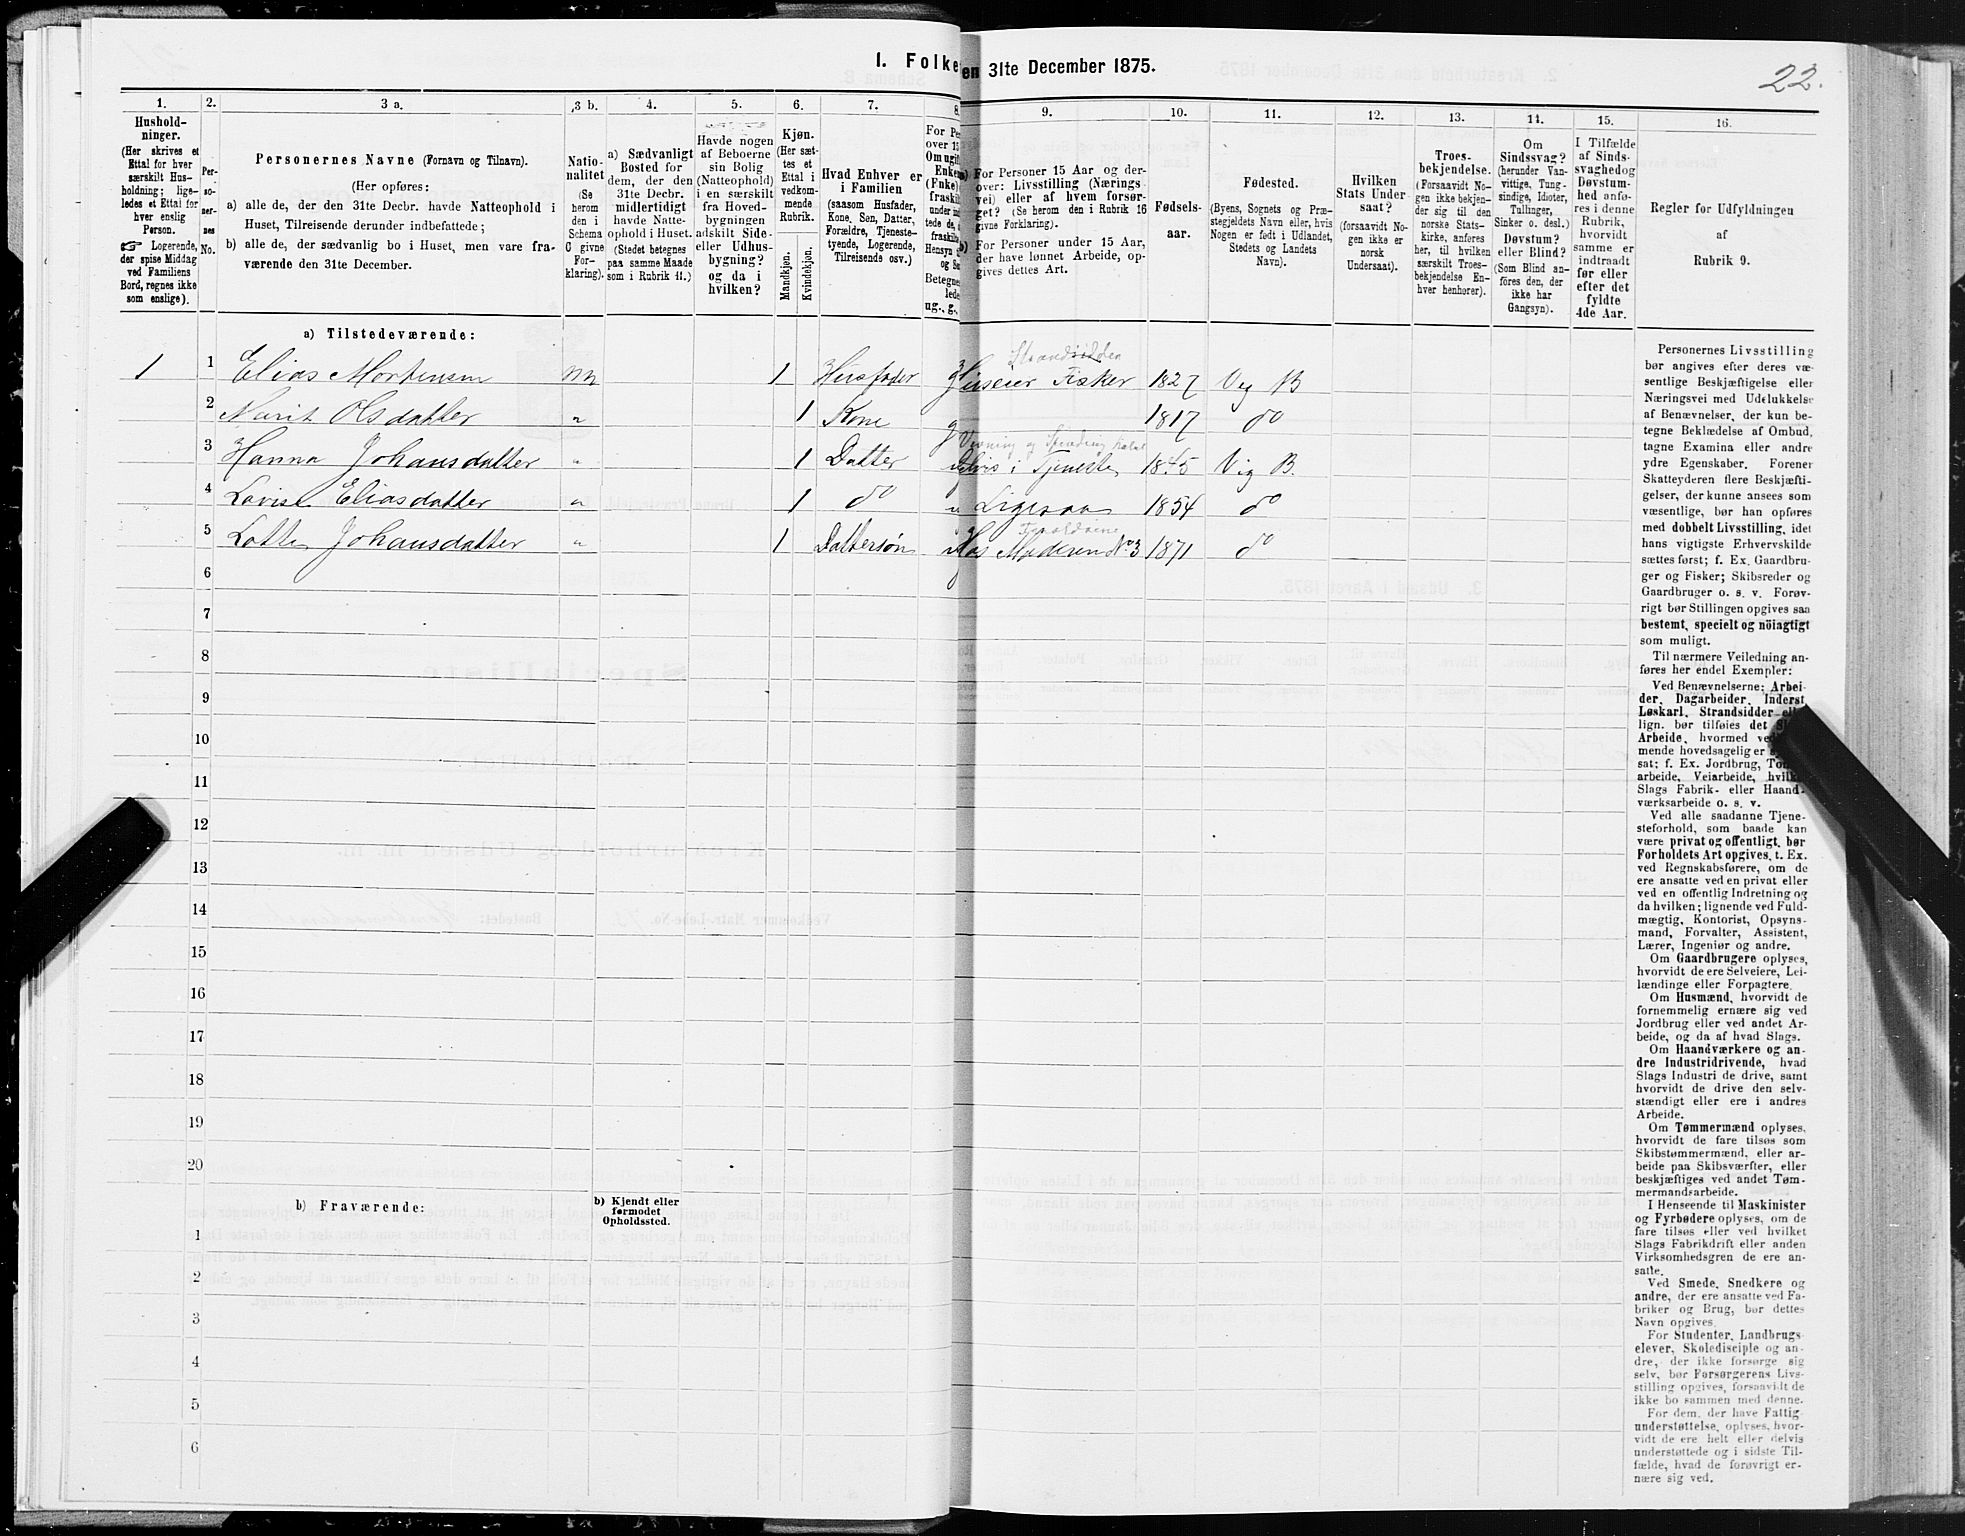 1. Folke en 31te December 1875.
22.
1.
Hushold-
ninger.
(Her skrives et
Ettal for hver
særskilt Hus-
holdning; lige-
ledes et Ettal for
hver enslig
Person.
☞ Logerende,
der spise Middag
ved Familiens
Bord, regnes ikke
som enslige).
2.
Per-
so-
ner-
nes
No.
3 a.
Personernes Navne (Fornavn og Tilnavn).
(Her opføres:
a) alle de, der den 31te Decbr. havde Natteophold i
Huset, Tilreisende derunder indbefattede;
b) alle de, der sædvanlig bo i Huset, men vare fra-
værende den 31te December.
3 b.
Natio-
nalitet
(Se
herom
den i
Schema
C givne
For-
klaring).
4.
a) Sædvanligt
Bosted for
dem, der den
31te Decbr.
midlertidigt
havde Natte-
ophold i Huset.
(Stedet betegnes
paa samme Maade
som i Rubrik 11.)
5.
Havde nogen
af Beboerne
sin Bolig
(Natteophold)
i en særskilt
fra Hoved-
bygningen
adskilt Side-
eller Udhus-
bygning?
og da i
hvilken?
6.
Kjøn.
(Her sæt-
tes et
Ettal i
vedkom-
mende
Rubrik.
Mandkjøn.
Kvindekjøn.
7.
Hvad Enhver er
i Familien
(saasom Husfader,
Kone, Søn, Datter,
Forældre, Tjeneste-
tyende, Logerende,
Tilreisende osv.)
8.
For Pe
over 15
Om ugif
Enke
(Fnke)
fraskil
9.
a) For Personer 15 Aar og der-
over: Livsstilling (Nærings
vei) eller af hvem forsør-
get? (Se herom den i Rubrik 16
givne Forklaring).
b) For Personer under 15 Aar,
der have lønnet Arbeide, op-
gives dettes Art.
10.
Fødsels-
aar.
11.
Fødested.
(Byens, Sognets og Præ-
stegjeldets Navn eller, hvis
Nogen er født i Udlandet,
Stedets og Landets
Navn).
12.
Hvilken
Stats Under-
saat?
(forsaavidt No-
gen ikke er
norsk
Undersaat).
13.
Troes-
bekjendelse.
(Forsaavidt No-
gen ikke bekjen-
der sig til den
norske Stats-
kirke, anføres
her, til hvilken
særskilt Troes-
bekjendelse En-
hver henhører).
14.
Om
Sindssvag?
(herunder Van-
vittige, Tung-
sindige, Idioter,
Tullinger,
Sinker o. desl.)
Døvstum?
eller Blind?
(Som Blind an-
føres den, der
ikke har
Gangsyn).
15.
I Tilfælde
af Sinds-
svaghed og
Døvstum-
hed anfø-
res i denne
Rubrik,
hvorvidt
samme er
indtraadt
før eller
efter det
fyldte
4de Aar.
16.
Regler for Udfyldningen
af
Rubrik 9.
a) Tilstedeværende:
Strandsidder
1 1 Elias Mortensen nn 1 Husfader g Huseier Fisker 1827 Veg B
2 Marit Olsdatter " 1 Kone g 1817 do
3 Hanna Johansdatter " 1 Datter delvis i Tjeneste 1845 Vig B.
4 Lovise Eliasdatter " 1 do u Ligesaa 1854 do
5 Lotte Johansdatter " 1 Dattersøn Hos Moderen No 3 1871 do
6
7
8
9
10
11
12
13
14
15
16
17
18
19
20
b) Fraværende:
b) Kjendt eller
formodet
Opholdssted.
1
2
3
4
5
6
Personernes Livsstilling
bør angives efter deres væ-
sentlige Beskjæftigelse eller
Næringsvei med Udelukkelse
af Benævnelser, der kun be-
tegne Beklædelse af Ombud,
tagne Examina eller andre
ydre Egenskaber. Forener
Skatteyderen flere Beskjæfti-
gelser, der kunne ansees som
væsentlige, bør han opføres
med dobbelt Livsstilling, idet
hans vigtigste Erhvervskilde
sættes først; f. Ex. Gaardbru-
ger og Fisker; Skibsreder og
Gaardbruger o. s. v. Forøv-
rigt bør Stillingen opgives saa
bestemt, specielt og nöiagtigt
som muligt.
Til nærmere Veiledning an-
føres her endel Exempler:
Ved Benævnelserne: Arbei-
der, Dagarbeider, Inderst,
Løskarl, Strandsidder
lign. bør tilføies det
Arbeide, hvormed
mende hovedsagelig er
sat; f. Ex. Jordbrug,
arbeide, Veiarbeide,
Slags Fabrik- eller Haand-
værksarbeide o. s. v.
Ved alle saadanne Tjene-
steforhold, som baade kan
være privat og offentligt, bør
Forholdets Art opgives, t. Ex.
ved Regnskabsførere, om de
ere ansatte ved en privat eller
ved en offentlig Indretning og
da hvilken; lignende ved Fuld-
mægtig, Kontorist, Opsyns-
mand, Forvalter, Assistent,
Lærer, Ingeniør og andre.
Om Gaardbrugere oplyses,
hvorvidt de ere Selveiere, Lei-
lændinge eller Forpagtere.
Om Husmænd, hvorvidt de
fornemmelig ernære sig ved
Jordbrug eller ved andet Ar-
beide, og da af hvad Slags.
Om Haandværkere og an-
dre Industridrivende, hvad
Slags Industri de drive, samt
hvorvidt de drive den selv-
stændigt eller ere i andres
Arbeide.
Om Tømmermænd oplyses,
hvorvidt de fare tilsøs som
Skibstømmermænd, eller ar-
beide paa Skibsværfter, eller
beskjæftiges ved andet Tøm-
mermandsarbeide.
I Henseende til Maskinister
og Fyrbødere oplyses, om de
fare tilsøs eller ved hvilket
Slags Fabrikdrift eller anden
Virksomhedsgren de ere an-
satte.
Ved Smede, Snedkere og
andre, der ere ansatte ved Fa-
briker og Brug, bør dettes
Navn opgives.
For Studenter, Landbrugs-
elever, Skoledisciple og an-
dre, der ikke forsørge sig
selv, bør Forsørgerens Livs-
stilling opgives, forsaavidt de
ikke bo sammen med denne.
For dem, der have Fattig-
understøttelse, oplyses, hvor-
vidt de ere helt eller delvis
understøttede og i sidste Til-
fælde, hvad de forøvrigt er-
nære sig ved.